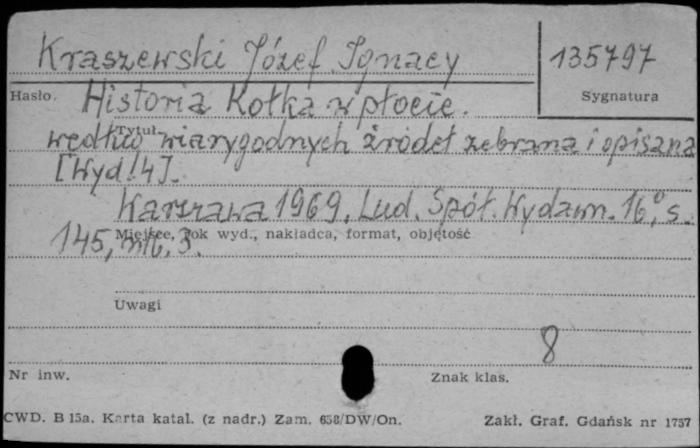 Kraszewski Józef Ignacy
135797
Hasło.
Sygnatura
Historia Kołka w płocie.
Tytuł
według wiarygodnych źródeł zebrana i opisana
[Wyd. 4].
Warszawa 1969. Lud. Spół. Wydawn. 16° s.
Miejsce, rok wyd., nakładca, format, objętość
145, nlb. 3.
Uwagi
8
Nr inw.
Znak klas.
CWD. B 15a. Karta katal. (z nadr.) Zam. 658/DW/On.
Zakł. Graf. Gdańsk nr 1757